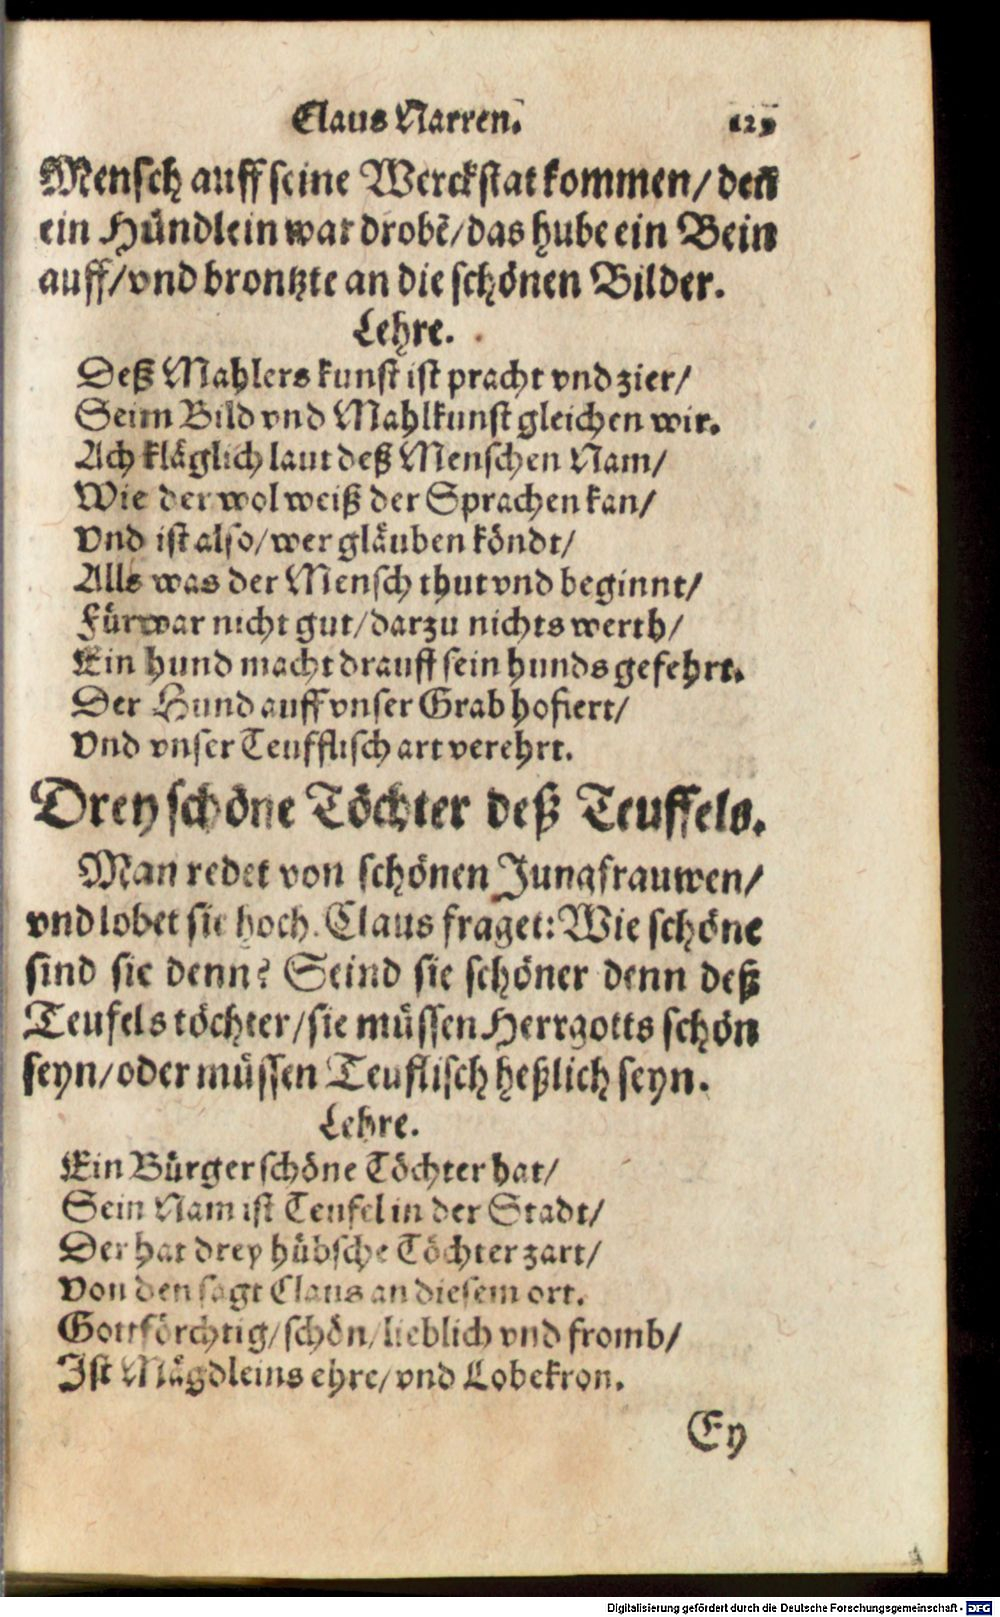 Claus Narren.
Mensch auff seine Werckstat kommen/ den
ein Hündlein war drobẽ/ das hube ein Bein
auff/ vnd brontzte an die schönen Bilder.
Lehre.
Deß Mahlers kunst ist pracht vnd zier/
Seim Bild vnd Mahlkunst gleichen wir.
Ach kläglich laut deß Menschen Nam/
Wie der wol weiß der Sprachen kan/
Vnd ist also/ wer gläuben köndt/
Alls was der Mensch thut vnd beginnt/
Fürwar nicht gut/ darzu nichts werth/
Ein hund macht drauff sein hunds gefehrt.
Der Hund auff vnser Grab hofiert/
Vnd vnser Teufflisch art verehrt.
Drey schöne Töchter deß Teuffels.
Man redet von schönen Jungfrauwen/
vnd lobet sie hoch. Claus fraget: Wie schöne
sind sie denn? Seind sie schöner denn deß
Teufels töchter/ sie müssen Herrgotts schön
seyn/ oder müssen Teuflisch heßlich seyn.
Lehre.
Ein Bürger schöne Töchter hat/
Sein Nam ist Teufel in der Stadt/
Der hat drey hübsche Töchter zart/
Von den sagt Claus an diesem ort.
Gottförchtig/ schön/ lieblich vnd fromb/
Ist Mägdleins ehre/ vnd Lobekron.
Ey
Digitalisierung gefördert durch die Deutsche Forschungsgemeinschaft - DFG